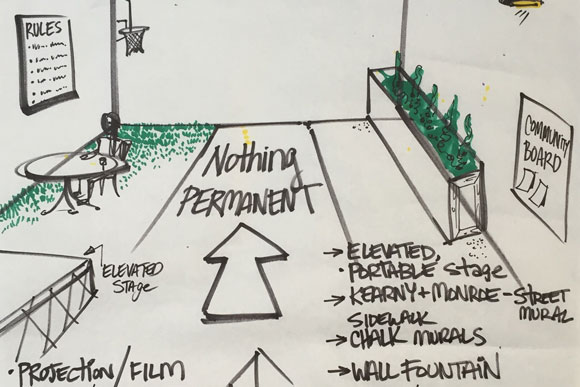 RULES
COMMUNITY
BOARD
Nothing
PERMANENT
ELEVATED
STAGE
→ ELEVATED,
• PORTABLE STAGE
→ KEARNY + MONROE - STREET
MURAL
SIDEWALK
→ CHALK MURALS
→ WALL FOUNTAIN
• PROJECTION / FILM